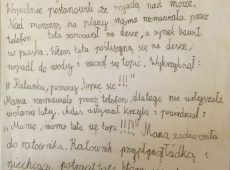 Wspólnie postanowili że pojadą nad morze.
Nad morzem na plaży mama rozmawiała przez
telefon, tata serwował na desce, a synek bawił
w piasku. W tem tata poślizgną się na desce,
wpadł do wody i zaczął się topić. Wykrzyknął:
" Ratunku, pomocy, topię się !!!"
Mama rozmawiała przez telefon, dlatego nie usłyszała
wołania taty. usłyszał krzyki i powiedział:
" Mamo, mamo tata się topi!!!" Mama zadzwoniła
do ratownika. Ratownik przypłyną łódką i